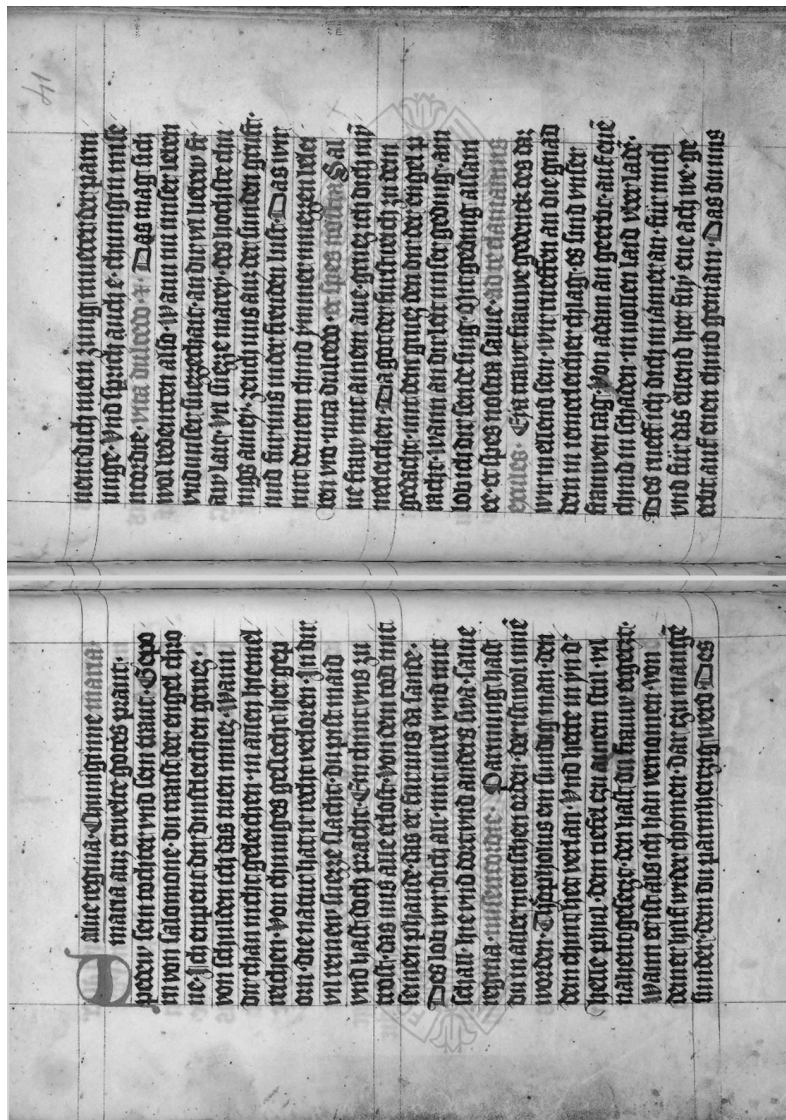 Salue regina Chuniginne maria
maria auz erwelte gotes praut
peren sein tochter vnd sein traut Gepo
rn von salomone du trast der engel chro
ne Sich enpeut dir dinstleichen gruez
von schulden ich das tuen muez Wann
dir chan nicht geleichen in allen hiemel
reichen Von chuniges geslecht her gepo
orn die natur hat ir recht verloren In dir
vil reinew suezze Nacht du pist maid
vnd hast doch pracht Ein chint vns zu
trost das vns alle erlost Von dem tod mit
seinen phande das er fur vns da sande
Des lob wir dich all mit iubel vnd mit
schall hie vnd dort vnd anders swa salue
regina misericordie Parmung hast
du in aller menschen orden der ist wol inne
worden Theophilus ein sundig man den
dein chint het verlan Vnd hette in in der
helle phul dem tiefel zu ainem stul vil
nahen gesetzt den hast du fraw ergetzt
Wann er ist als ich han vernomen von
deiner hilf wider chomen dar zu manigen
sunder den du parmhertzig werd Des
nent dich mein zung muter der parm
unge Vnd sprich auch e chunigin mise
ricordie vita dulcedo Das mag sich
wol bedeuten also Wann mit unser leben
vnd unser suezzechait an die vil liebew fr
aw lait Vil suezze marey des hochsten chu
nigs amey zeuch uns auz der sunden gruft
und fur uns in der freuden luft Das wir
mit deinem chind ymmer muezzen lebe
ten vita dulcedo et spes nostra Sal
ue fraw mit ainem aue gruez ich dich
netleichen Da got der
gedacht mit dem gruez den dir der engel p
racht wann an dir lebt unser geding am
lob ich dir sende sing Vir geding alsam
ee et spes nostra salue ad te clamamus
exules Eya trawt frauwe gedenck des daz
wir in ellend sein wir rueffen an die gnad
dein in iemerleicher chlag es sind unser
frauwen tag Von adam an geerbt auf ene
chind in schulden in wollen laid vber lade
Des rueff ich dich mäner an fur mich
vnd fur das ellend her
erbt auf enen chind genam Das du uns